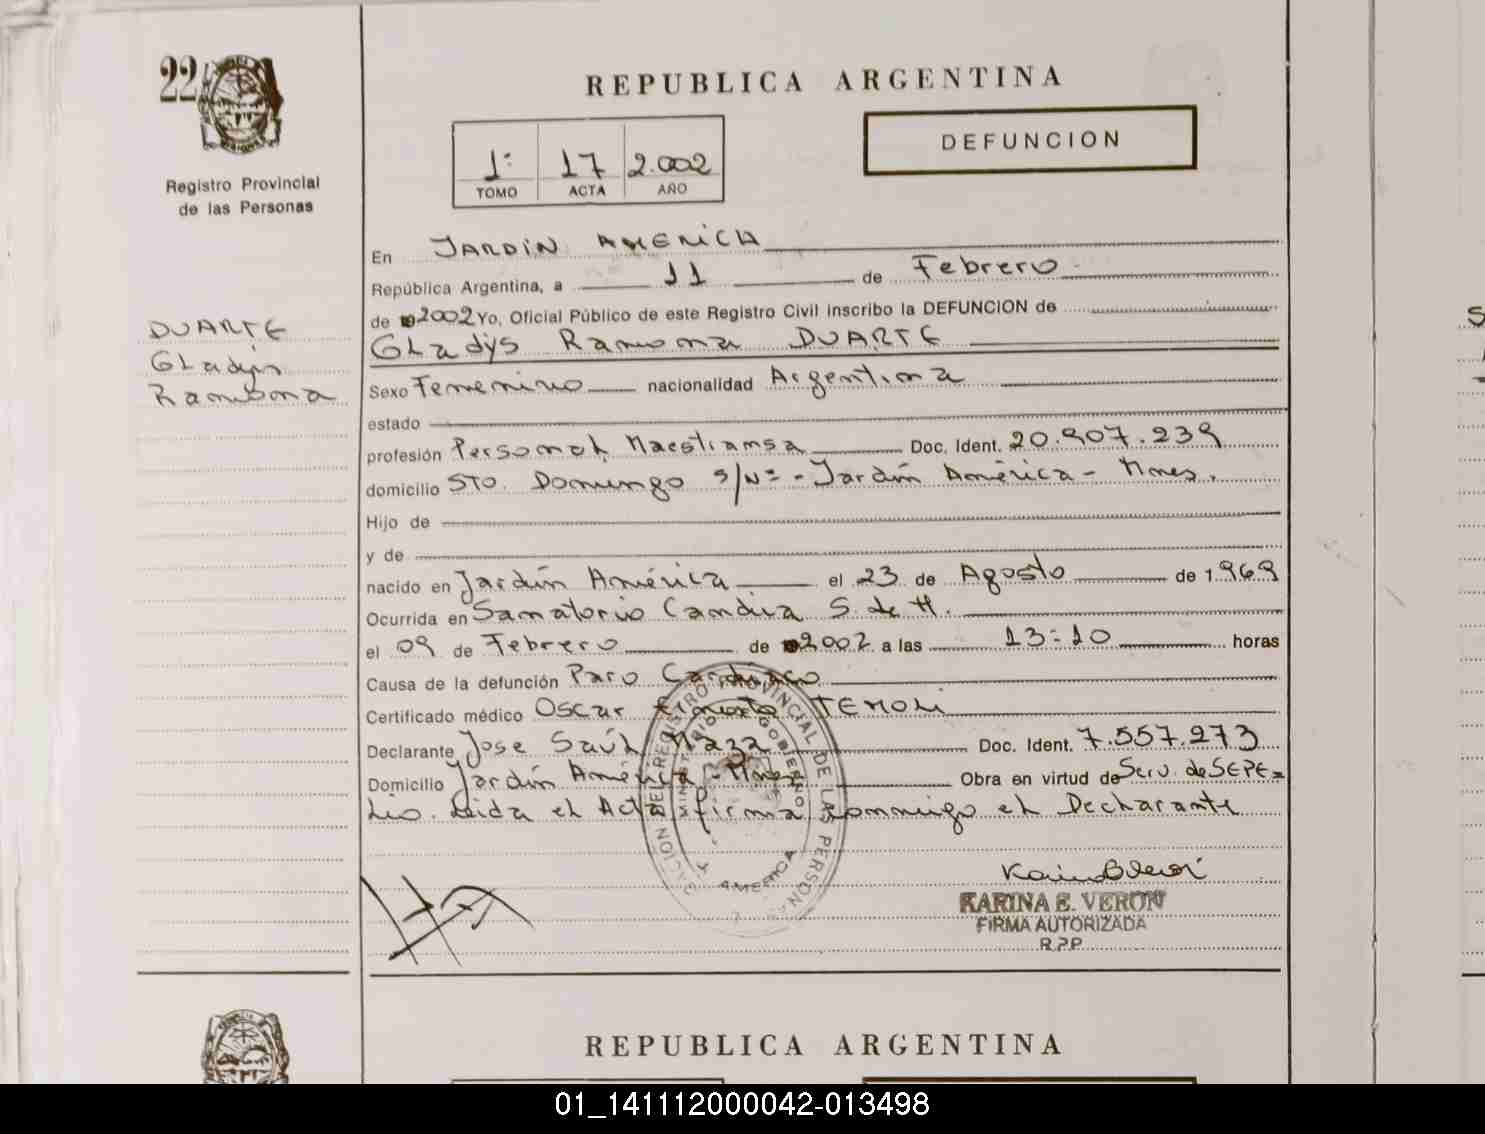 22
Registro Provincial
de las Personas
REPUBLICA ARGENTINA
DEFUNCION
1º 17 2.002
TOMO ACTA AÑO
DUARTE
GLadys
Ramona
En JARDIN AMERICA
República Argentina, a 11 de Febrero
de 2002 Yo, Oficial Público de este Registro Civil inscribo la DEFUNCION de
GLadys Ramona DUARTE
Sexo Femenino nacionalidad Argentina
estado
profesión Personal Maestranza Doc. Ident. 20.907.239
domicilio STO. Domingo S/Nº - Jardín América - Mnes.
Hijo de
y de
nacido en Jardín América el 23 de Agosto de 1969
Ocurrida en Sanatorio Candia S. de H.
el 09 de Febrero de 2002 a las 13:10 horas
Causa de la defunción Paro Cardíaco
Certificado médico Oscar
Declarante Jose Saúl Maza Doc. Ident. 7.557.273
Domicilio Jardín América - Mnes Obra en virtud de Serv. de SEPE=
Lio. Leida el Acta firma conmigo el Declarante
REGISTRO PROVINCIAL DE LAS PERSONAS
MINISTERIO GOBIERNO
AMERICA
KARINA E. VERON
FIRMA AUTORIZADA
R.P.P.
REPUBLICA ARGENTINA
01_141112000042-013498